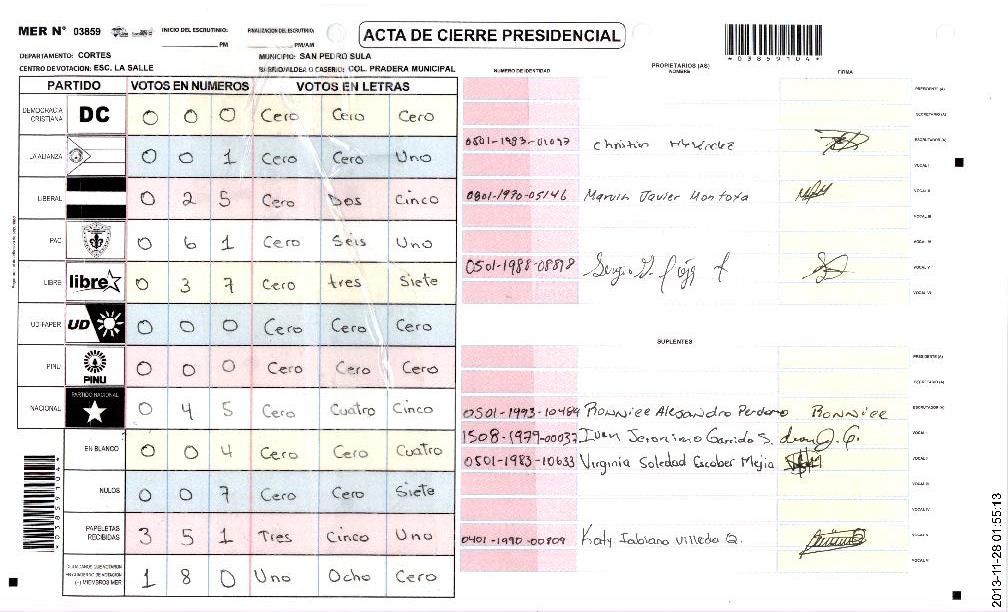 MER N° 03859 INICIO DEL ESCRUTINIO: FINALIZACION DEL ESCRUTINIO: ACTA DE CIERRE PRESIDENCIAL
PM PM/AM *03859104*
DEPARTAMENTO: CORTES MUNICIPIO: SAN PEDRO SULA
CENTRO DE VOTACION: ESC. LA SALLE BARRIO/ALDEA O CASERIO: COL. PRADERA MUNICIPAL
NUMERO DE IDENTIDAD PROPIETARIOS (AS) NOMBRE FIRMA
PARTIDO VOTOS EN NUMEROS VOTOS EN LETRAS
PRESIDENTE (A)
DEMOCRACIA CRISTIANA DC 0 0 0 Cero Cero Cero
SECRETARIO (A)
0501-1993-01097 Christian ESCRUTADOR (A)
LA ALIANZA 0 0 1 Cero Cero Uno
VOCAL I
LIBERAL 0 2 5 Cero Dos Cinco
0801-1970-05146 Marvin Javier Montoya VOCAL II
VOCAL III
PAC 0 6 1 Cero Seis Uno
VOCAL IV
0501-1988-08818 Sergio VOCAL V
LIBRE libre 0 3 7 Cero tres Siete
VOCAL VI
UD-FAPER UD 0 0 0 Cero Cero Cero
SUPLENTES
PRESIDENTE (A)
PINU PINU 0 0 0 Cero Cero Cero
SECRETARIO (A)
NACIONAL PARTIDO NACIONAL 0 4 5 Cero Cuatro Cinco
0501-1993-10484 Ronniee Alejandro Perdomo Ronniee ESCRUTADOR (A)
1508-1979-00037 Ivan Jeronimo Garrido S. VOCAL I
EN BLANCO 0 0 4 Cero Cero Cuatro
0501-1983-10633 Virginia Soledad Escober Mejia
NULOS 0 0 7 Cero Cero Siete
VOCAL III
VOCAL IV
PAPELETAS RECIBIDAS 3 5 1 Tres Cinco Uno
0401-1990-00809 Katy Fabiano Villeda Q. VOCAL V
VOCAL VI
CIUDADANOS QUE VOTARON EN CUADERNO DE VOTACION (-) MIEMBROS MER 1 8 0 Uno Ocho Cero
*03859104*
2013-11-28 01:55:13